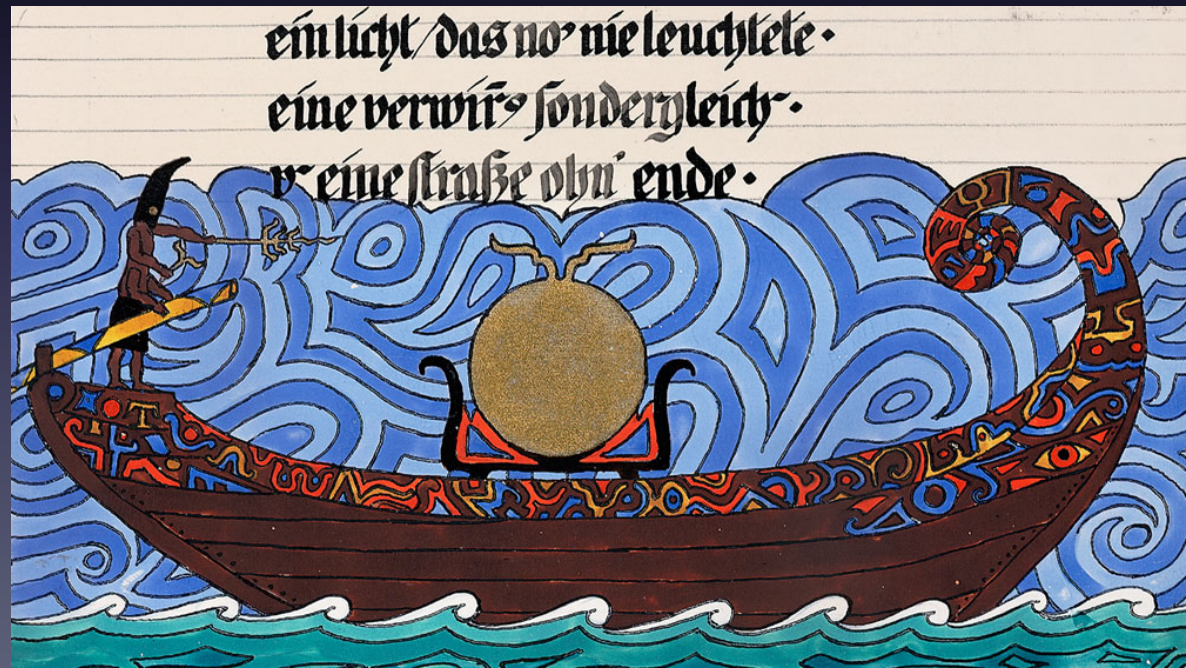 ein licht/das no’ nie leuchtete·
eine verwir̄ꝰ sondergleich·
v’ eine straße ohn’ ende·